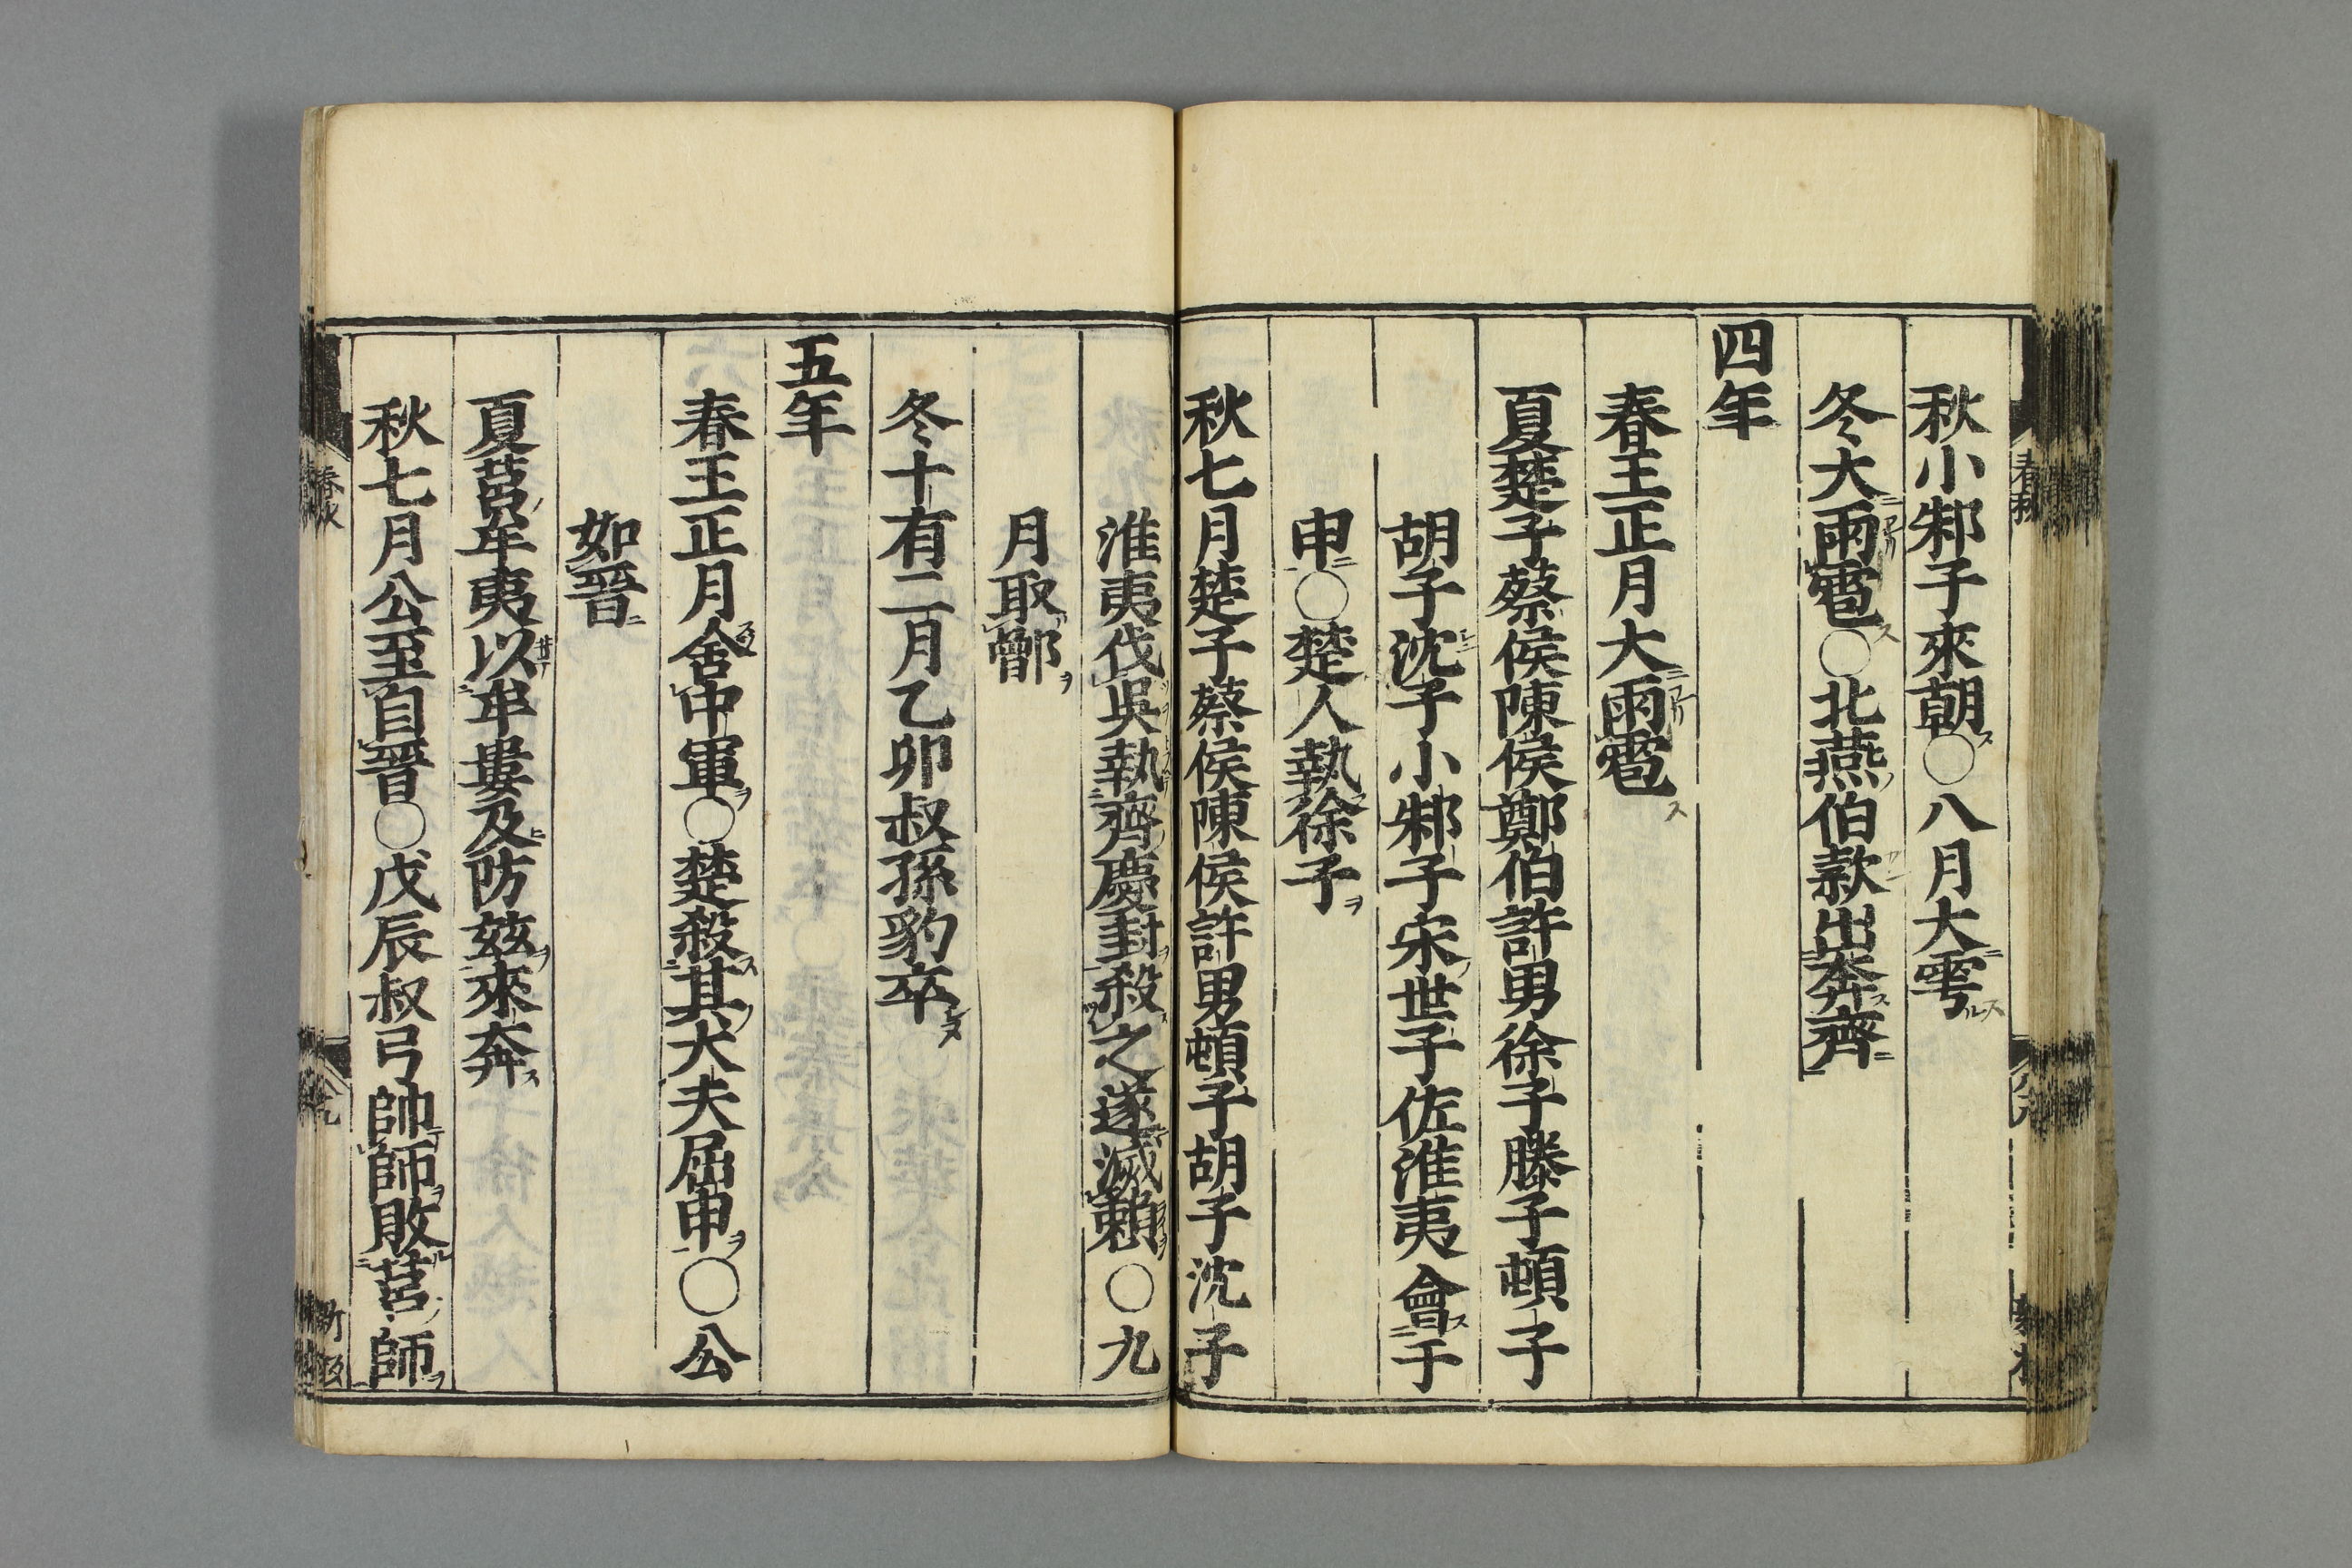 秋小邾子來朝○八月大雩
冬大雨雹○北燕伯款出奔齊
四年
春王正月大雨雹
夏楚子蔡侯陳侯鄭伯許男徐子滕子頓子
胡子沈子小邾子宋世子佐淮夷會于
申○楚人執徐子
秋七月楚子蔡侯陳侯許男頓子胡子沈子
淮夷伐吳執齊慶封殺之遂滅賴○九
月取鄫
冬十有二月乙卯叔孫豹卒
五年
春王正月舍中軍○楚殺其大夫屈申○公
如晉
夏莒牟夷以牟婁及防茲來奔
秋七月公至自晉○戊辰叔弓帥師敗莒師